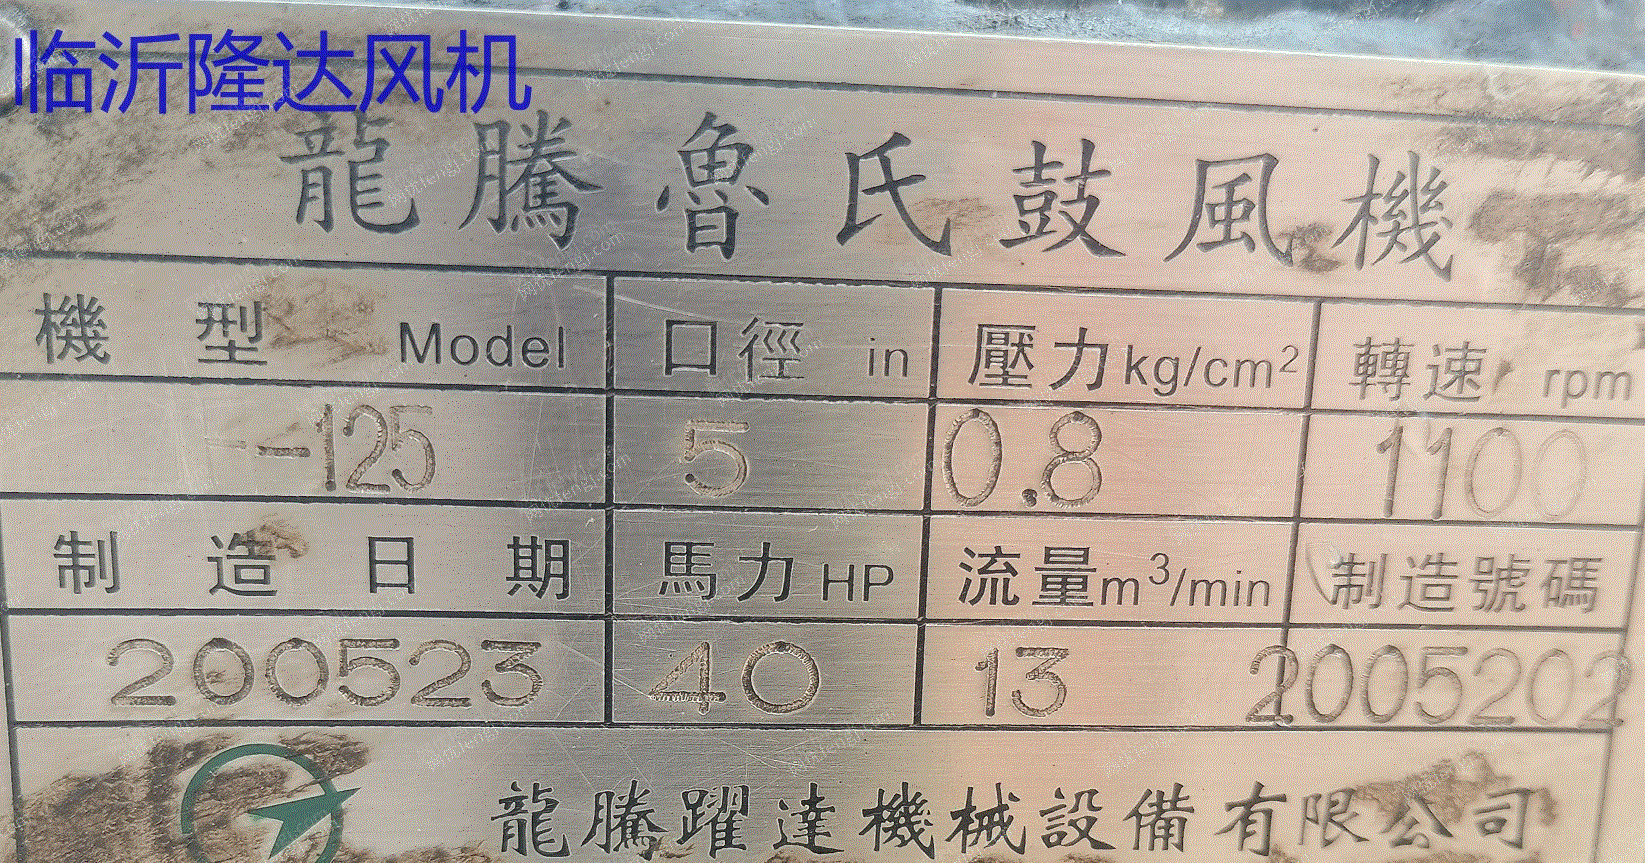 临沂隆达风机
龍騰魯氏鼓風機
機型 Model 口徑 in 壓力kg/cm² 轉速 rpm
-125 5 0.8 1100
制造日期 馬力HP 流量m³/min 制造號碼
200523 40 13 2005202
龍騰躍達機械設備有限公司